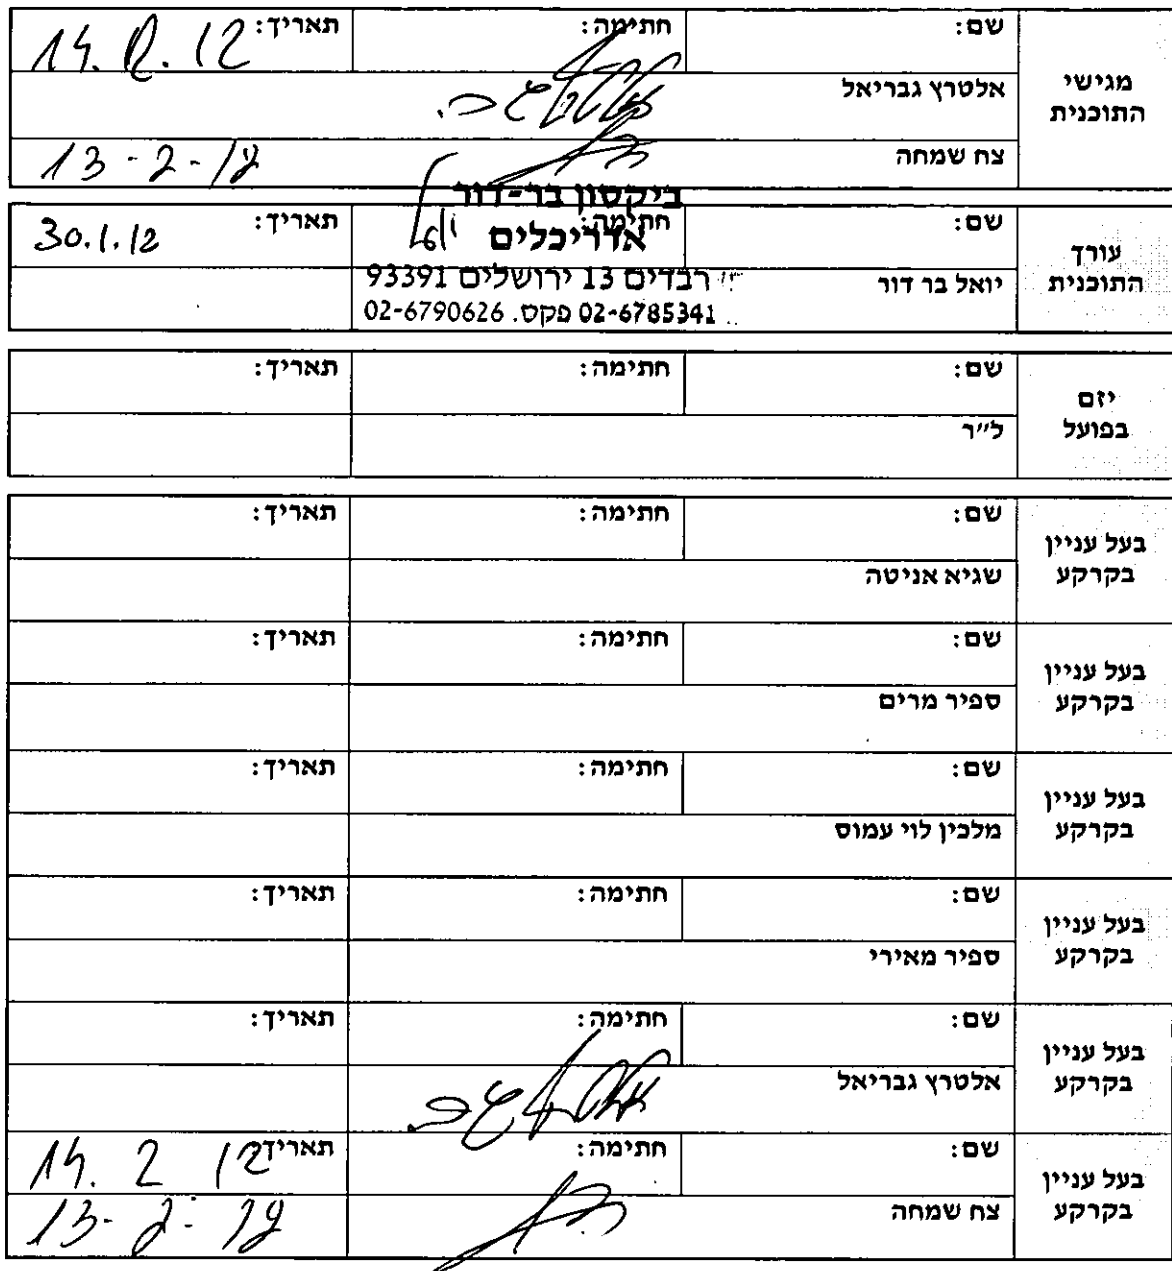 מגישי התוכנית
שם: חתימה: תאריך: 14.2.12
אלטרץ גבריאל
צח שמחה 13-2-12
עורך התוכנית
שם: חתימה: תאריך: 30.1.12
יואל בר דור
ביקסון בר-דור
אדריכלים
רבדים 13 ירושלים 93391
02-6785341 פקס. 02-6790626
יזם בפועל
שם: חתימה: תאריך:
ל״ר
בעל עניין בקרקע
שם: חתימה: תאריך:
שגיא אניטה
בעל עניין בקרקע
שם: חתימה: תאריך:
ספיר מרים
בעל עניין בקרקע
שם: חתימה: תאריך:
מלכין לוי עמוס
בעל עניין בקרקע
שם: חתימה: תאריך:
ספיר מאירי
בעל עניין בקרקע
שם: חתימה: תאריך:
אלטרץ גבריאל
בעל עניין בקרקע
שם: חתימה: תאריך: 14. 2 12
צח שמחה 13-2-12